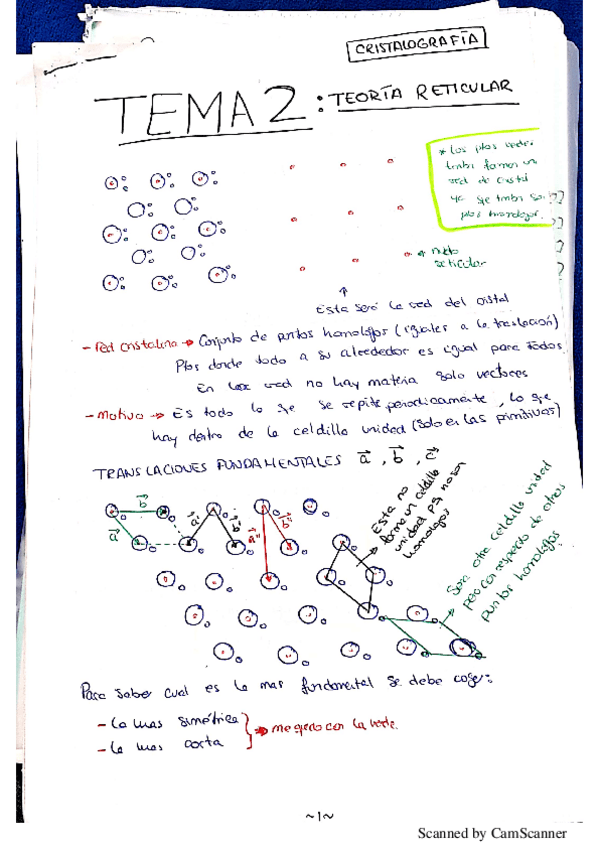 CRISTALOGRAFÍA
TEMA 2: TEORÍA RETICULAR
* Los ptos verdes
tmbn forman un
red de cristal
ya que tmbn son
ptos homologos.
nudo
reticular
Esta será la red del cristal
- Red cristalina → Conjunto de puntos homologos (iguales a la traslación)
Ptos donde todo a su alrededor es igual para todos.
En la red no hay materia solo vectores
- Motivo → Es todo lo que se repite periodicamente, lo que
hay dentro de la celdilla unidad (solo en las primitivas)
TRANSLACIONES FUNDAMENTALES a, b, c
b
a
a'
b'
a''
b''
Esta no
forma un celdilla
unidad pq no son
homologos
Sera otra celdilla unidad
pero con respecto de otros
puntos homologos.
Para saber cual es la mas fundamental se debe coger:
- La mas simétrica
- La mas corta
→ me quedo con la verde.
~1~
Scanned by CamScanner